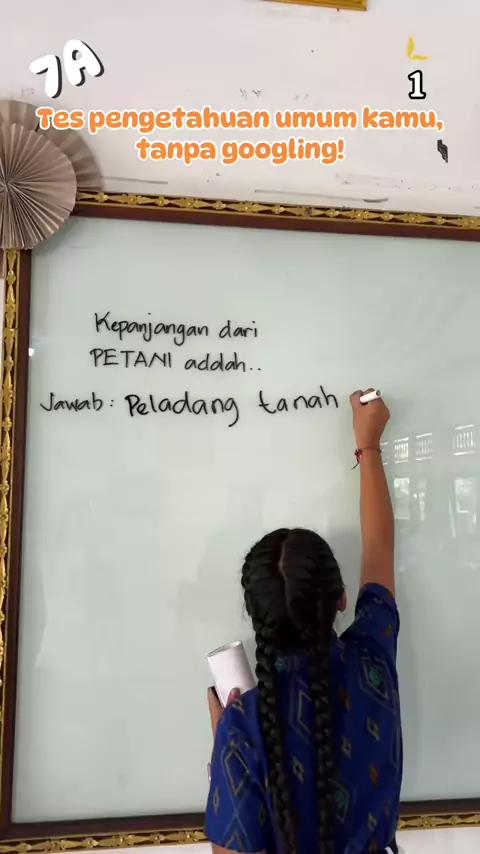 7A
1
Tes pengetahuan umum kamu,
tanpa googling!
Kepanjangan dari
PETANI adalah..
Jawab: Peladang tanah